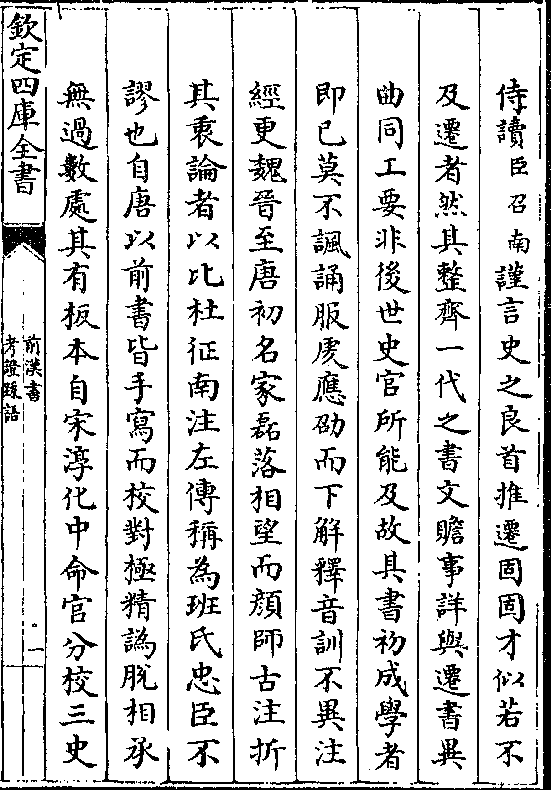 侍讀臣召南謹言史之良首推遷固固才似若不
及遷者然其整齊一代之書文贍事詳與遷書異
曲同工要非後世史官所能及故其書初成學者
即已莫不諷誦服虔應劭而下解釋音訓不異注
經更魏晉至唐初名家磊落相望而顏師古注折
其衷論者以比杜征南注左傳稱為班氏忠臣不
謬也自唐以前書皆手寫而校對極精譌脫相承
無過數處其有板本自宋淳化中命官分校三史
欽定四庫全書
前漢書
考證跋語
一